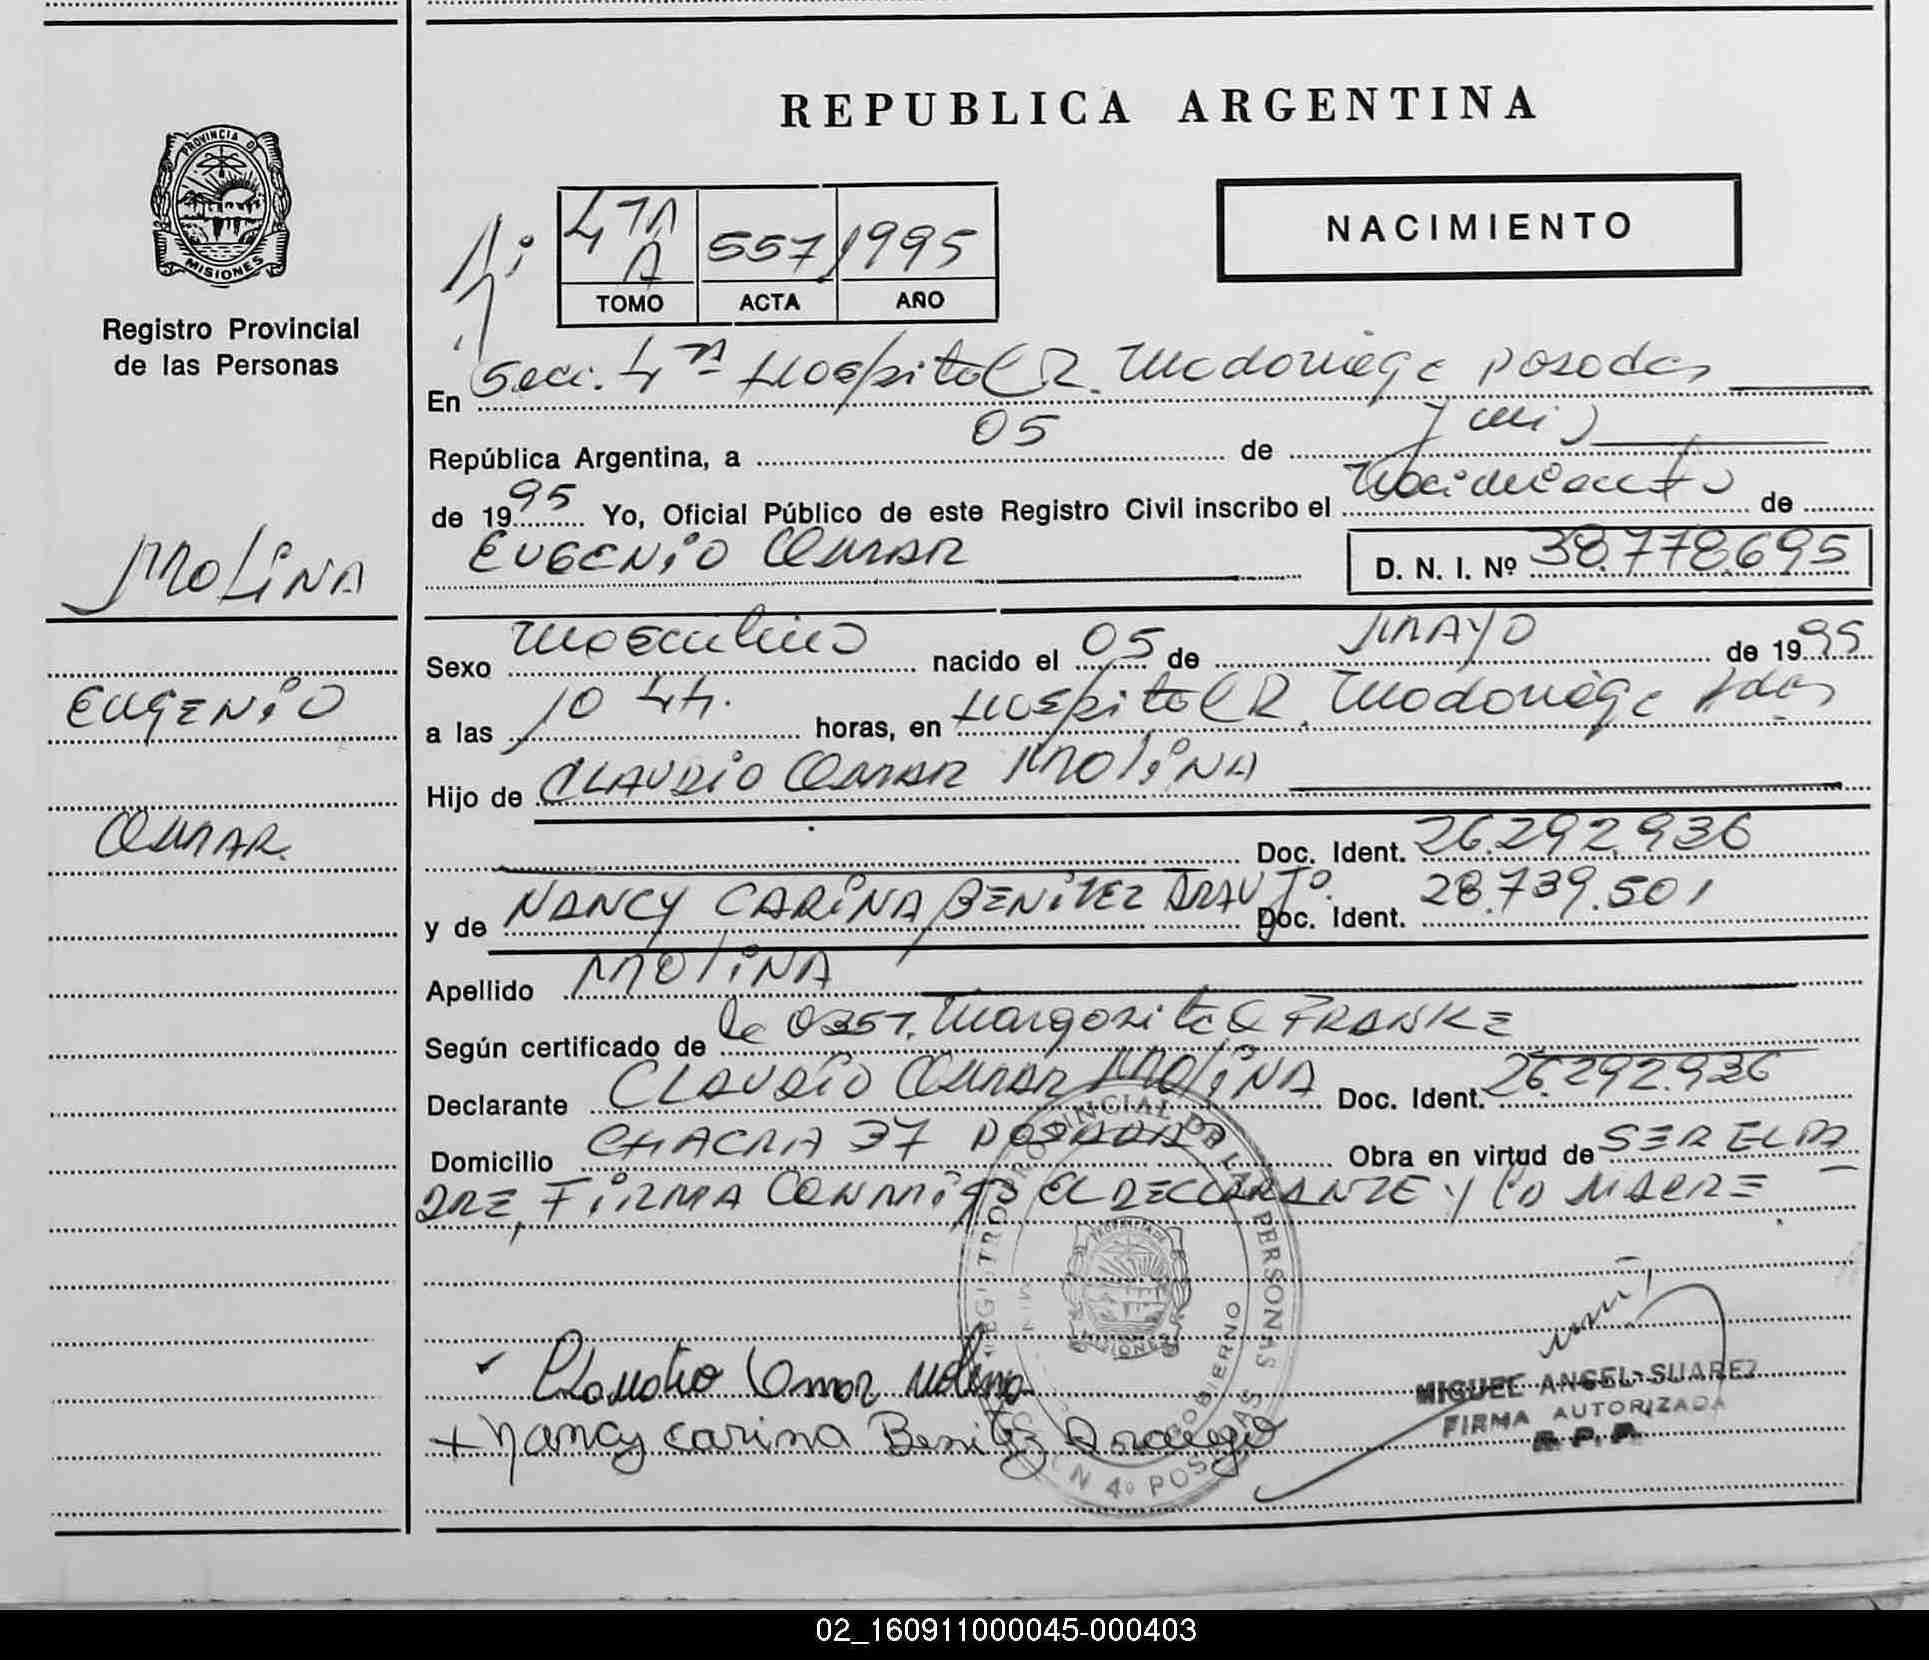 REPUBLICA ARGENTINA
PROVINCIA D
MISIONES
Registro Provincial
de las Personas
NACIMIENTO
4ta A 557 1995
TOMO ACTA AÑO
En Secc. 4ta Hospital R. Madariaga Posadas
República Argentina, a 05 de
de 1995 Yo, Oficial Público de este Registro Civil inscribo el Nacimiento de
EUGENIO OMAR D. N. I. Nº 38.778.695
MOLINA
EUGENIO
OMAR
Sexo Masculino nacido el 05 de MAYO de 1995
a las 10 horas, en Hospital R. Madariaga Pdas
Hijo de CLAUDIO OMAR MOLINA
Doc. Ident. 26.292.936
y de NANCY CARINA BENITEZ ARAUJO Doc. Ident. 28.739.501
Apellido MOLINA
Según certificado de Margarita FRANKE
Declarante CLAUDIO OMAR MOLINA Doc. Ident. 26.292.936
Domicilio CHACRA 37 POSADAS Obra en virtud de SER EL PA
DRE, FIRMA CONMIGO EL DECLARANTE Y LA MADRE
Claudio Omar Molina
+ Nancy Carina Benitez Araujo
REGISTRO PROVINCIAL DE LAS PERSONAS
GOBIERNO
MISIONES
N 4º POSADAS
MIGUEL ANGEL SUAREZ
FIRMA AUTORIZADA
R. P. P.
02_160911000045-000403